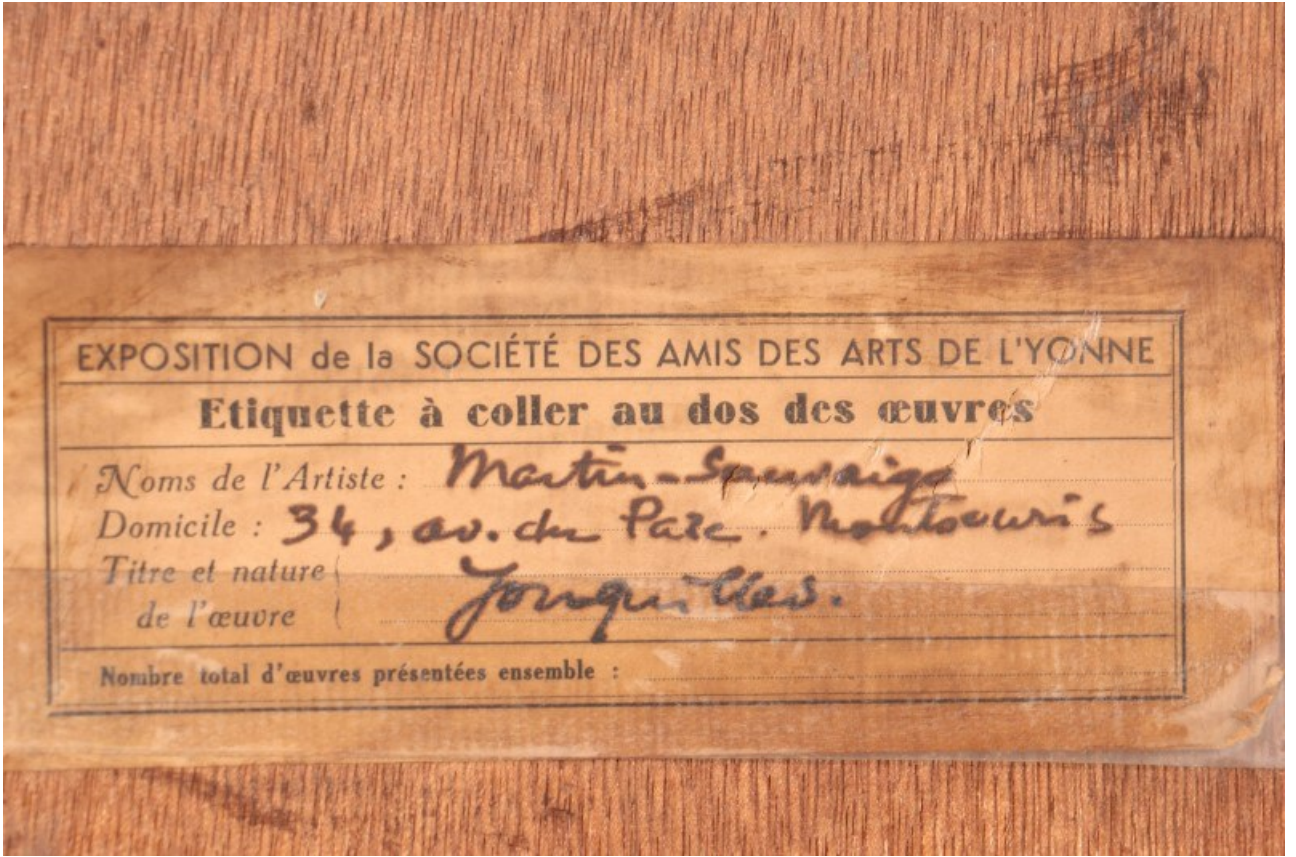 EXPOSITION de la SOCIÉTÉ DES AMIS DES ARTS DE L'YONNE
Etiquette à coller au dos des œuvres
Noms de l'Artiste : Martin-Sauvaigo
Domicile : 34, av. du Parc. Montsouris
Titre et nature
de l'œuvre
Jonquilles.
Nombre total d'œuvres présentées ensemble :